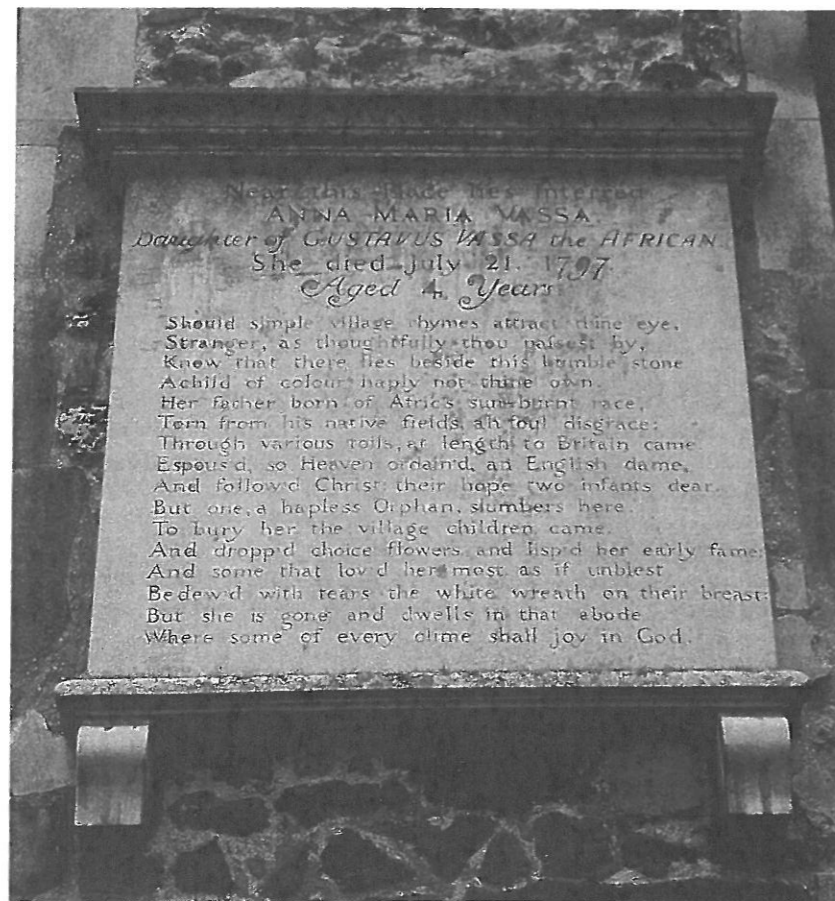 Near this Place lies Interred
ANNA MARIA VASSA
Daughter of GUSTAVUS VASSA the AFRICAN
She died July 21. 1797
Aged 4 Years
Should simple village rhymes attract thine eye,
Stranger, as thoughtfully thou passest by,
Know that there lies beside this humble stone
A child of colour haply not thine own.
Her father born of Afric's sun-burnt race,
Torn from his native fields, ah foul disgrace:
Through various toils, at length to Britain came
Espous'd, so Heaven ordain'd, an English dame,
And follow'd Christ; their hope two infants dear.
But one, a hapless Orphan, slumbers here.
To bury her the village children came.
And dropp'd choice flowers, and lisp'd her early fame;
And some that lov'd her most, as if unblest
Bedew'd with tears the white wreath on their breast;
But she is gone and dwells in that abode
Where some of every clime shall joy in God.